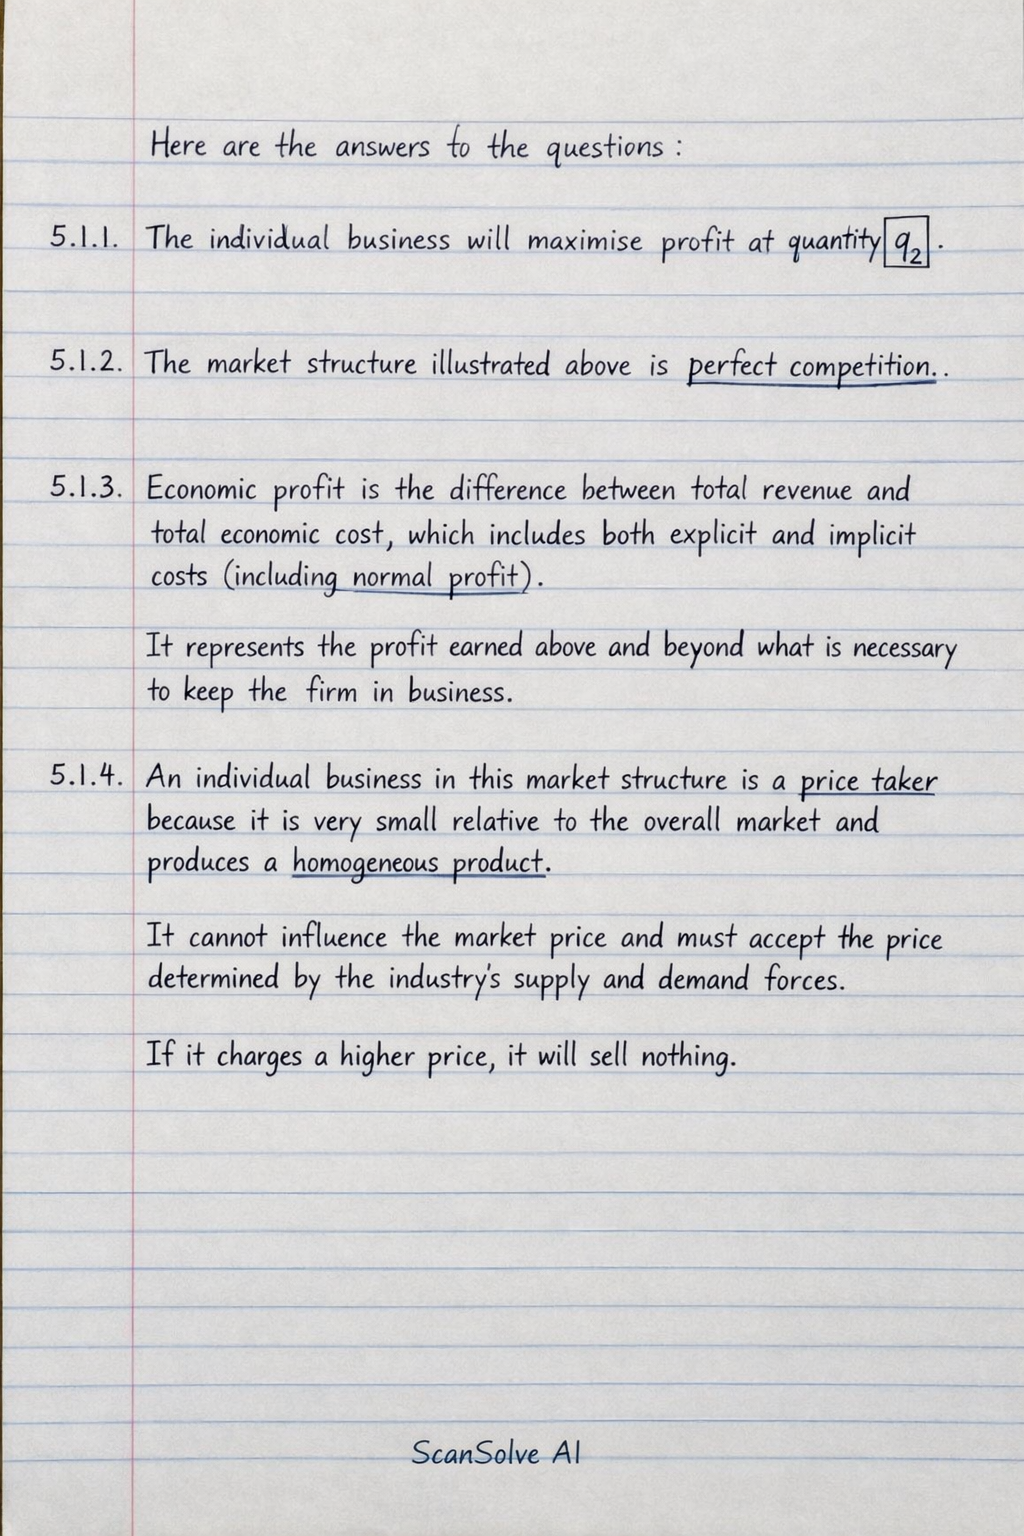 Here are the answers to the questions :
5.1.1. The individual business will maximise profit at quantity q₂.
5.1.2. The market structure illustrated above is perfect competition..
5.1.3. Economic profit is the difference between total revenue and
total economic cost, which includes both explicit and implicit
costs (including normal profit).
It represents the profit earned above and beyond what is necessary
to keep the firm in business.
5.1.4. An individual business in this market structure is a price taker
because it is very small relative to the overall market and
produces a homogeneous product.
It cannot influence the market price and must accept the price
determined by the industry's supply and demand forces.
If it charges a higher price, it will sell nothing.
ScanSolve AI